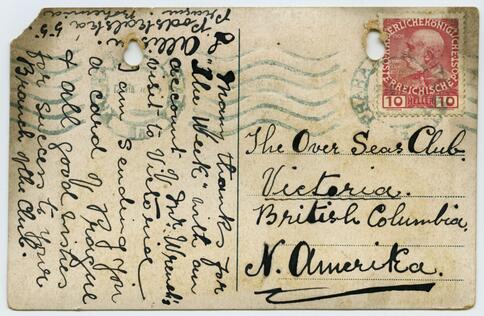 Many thanks for
"The Week" with an
account of Mr. Wrench's
visit to Victoria.
I am sending you
a card of Prague
& all good wishes
for success to your
Branch of the Club.
Allison
Podskalska 55
Bohemia
10 HELLER 10
The Over Seas Club.
Victoria.
British Columbia,
N. Amerika.